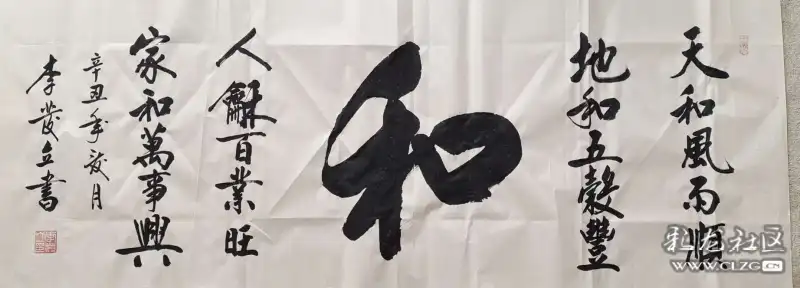 天和風雨順
地和五穀豐
和
人龢百業旺
家和萬事興
辛丑年
月
李發立書
私龙社区
WWW.CLZG.CN